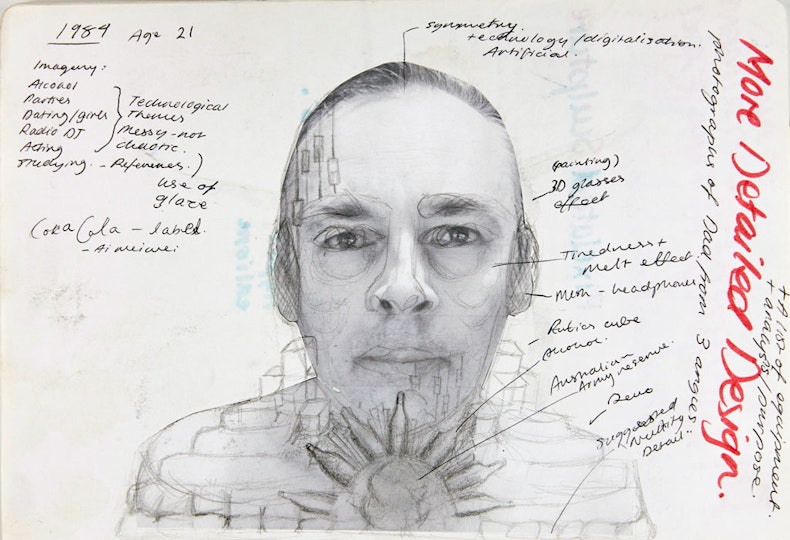 1984 Age 21
Imagery:
Alcohol
Parties
Dating/girls
Radio DJ
Acting
Studying. - References.
Technological
Themes
Messy - not
chaotic.
use of
glaze
Coka Cola - label.
- Ai weiwei
symmetry
technology/digitalisation.
Artificial.
(painting)
3D glasses
effect
Tiredness +
melt effect
Mesh - headphones
Rubics cube
Alcohol.
Australian
Army reserve.
Suggested
Detail.
More Detailed Design.
photographs of Dad from 3 angles
+ A list of equipment.
+ analysis/purpose.